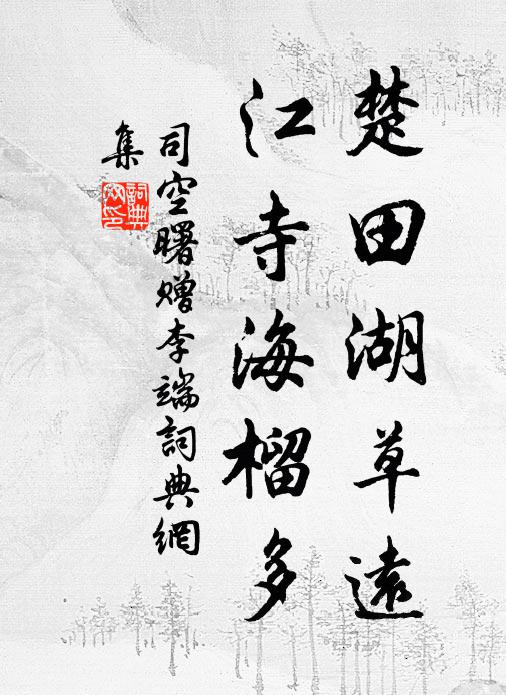 楚田湖草遠
江寺海榴多
司空曙贈李端詞典網
集
詞典
網印